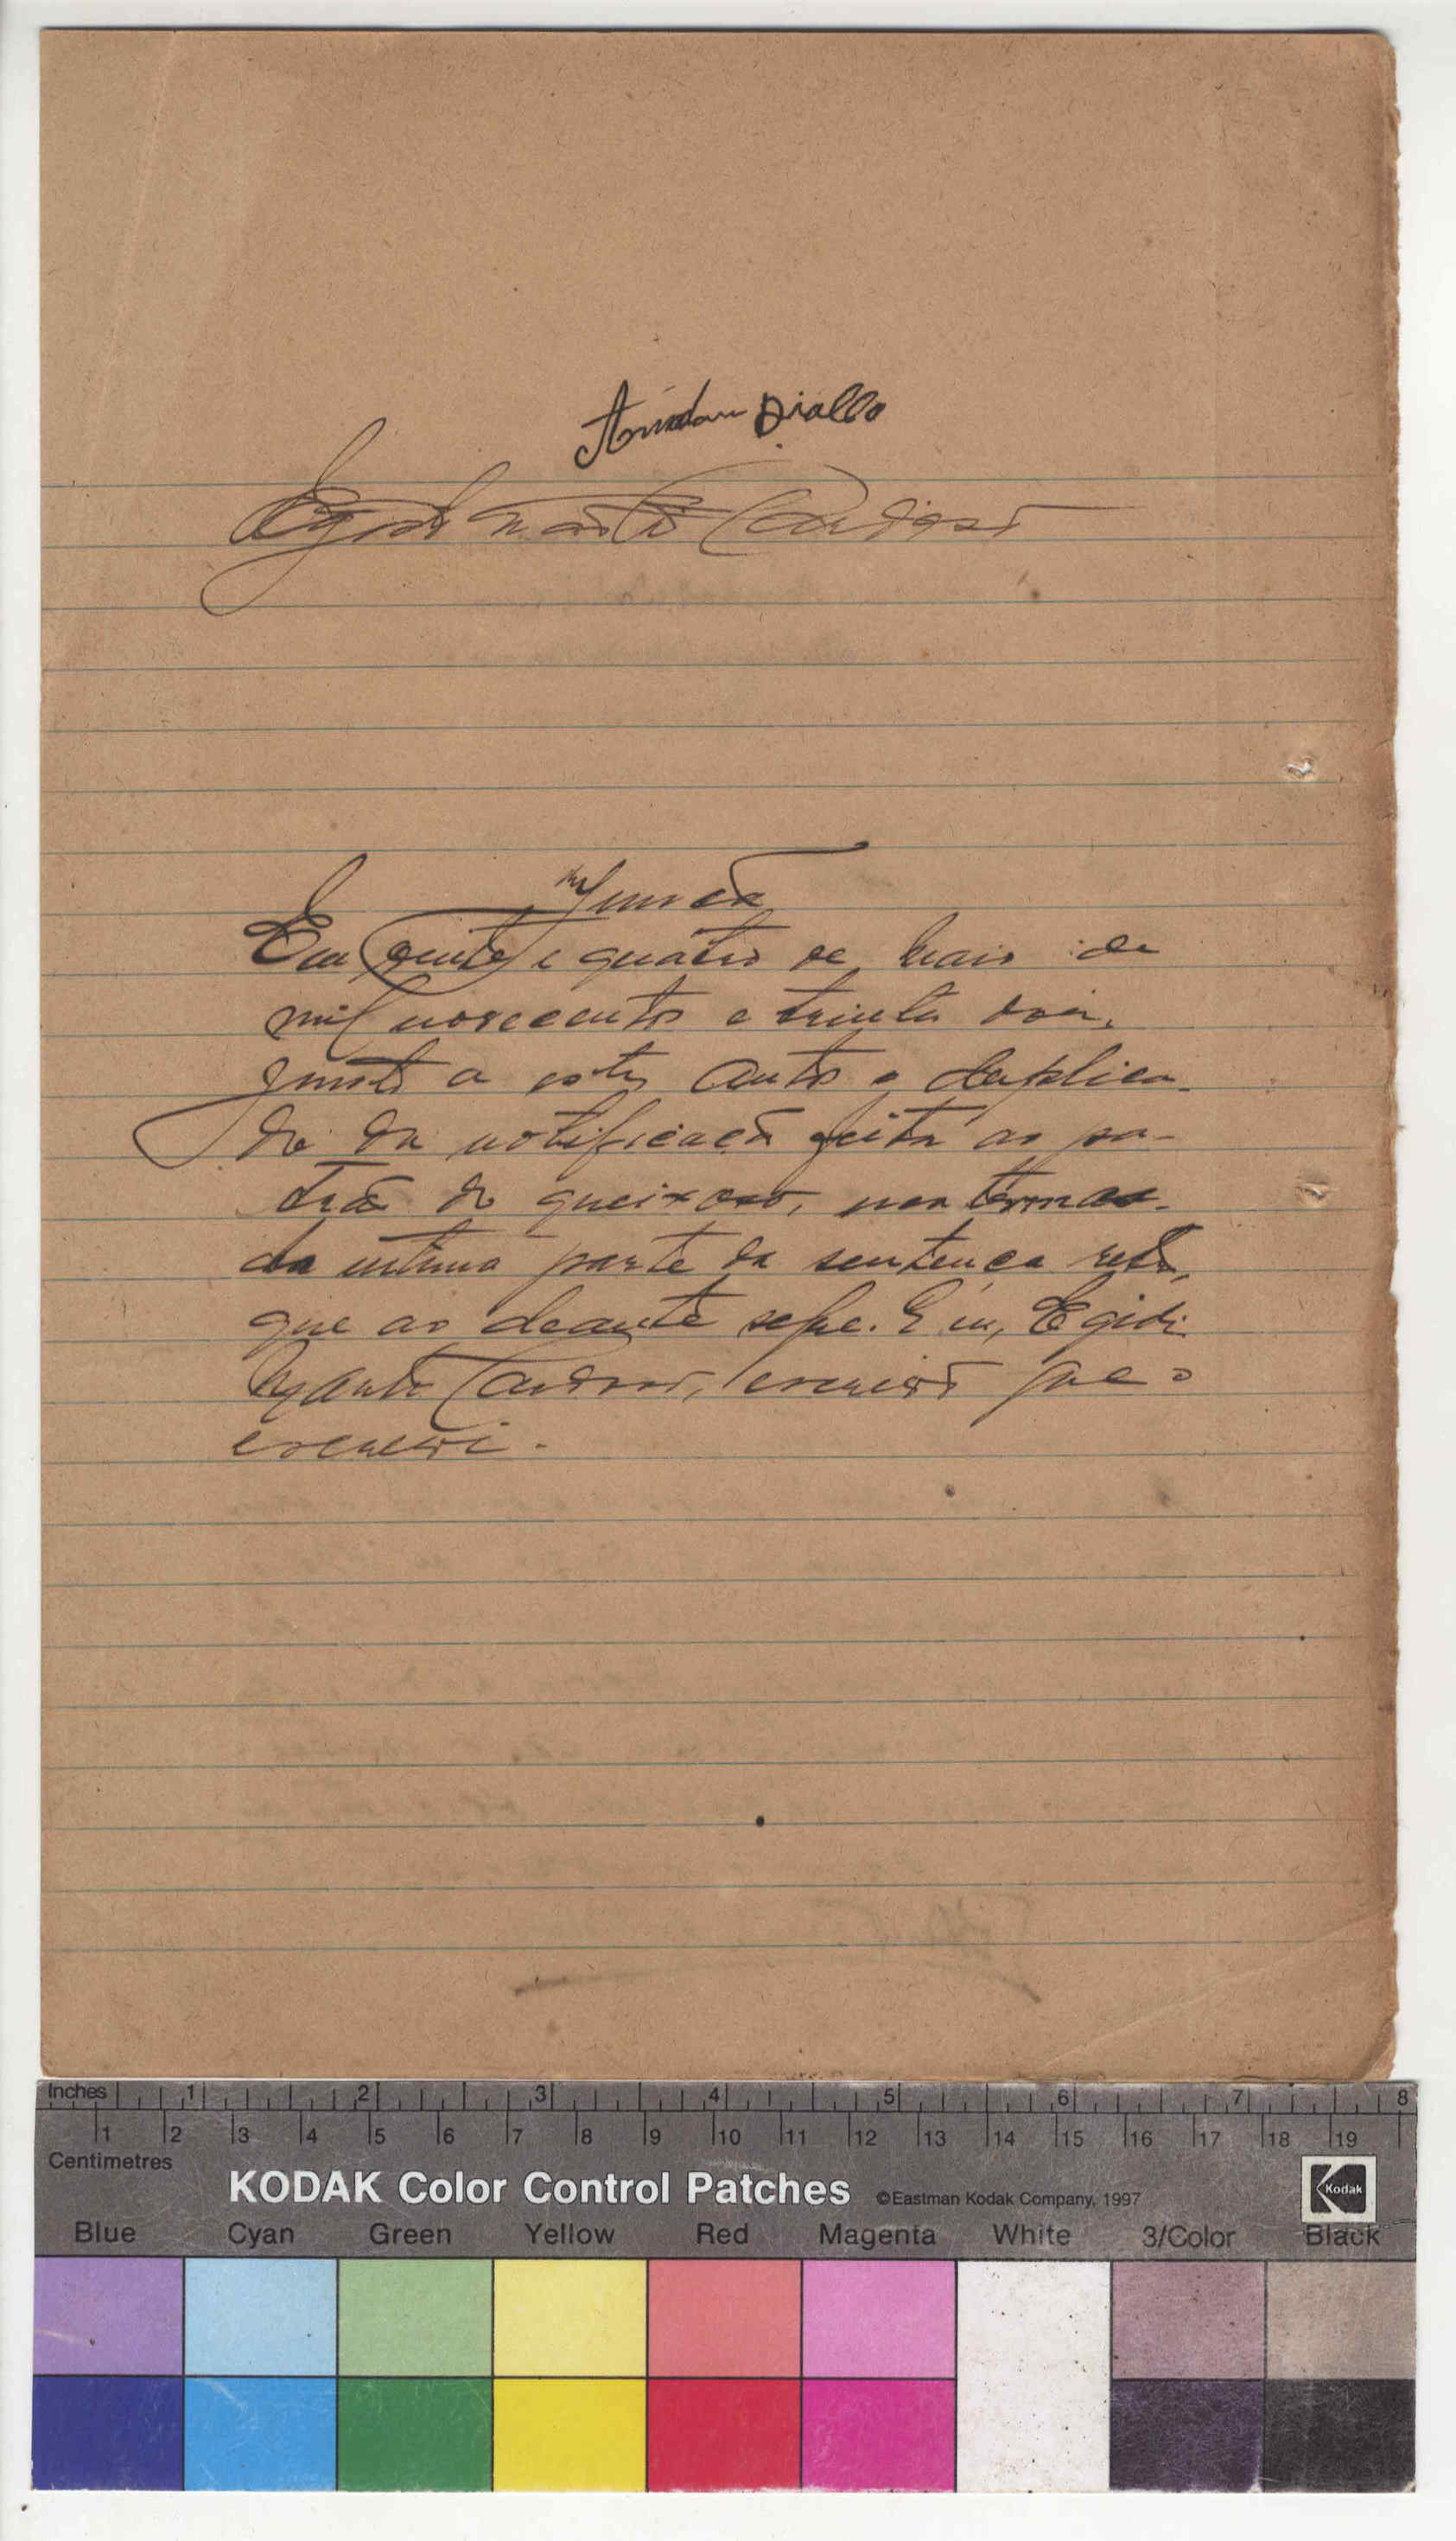 Diallo
Egidio Cardoso
Junção
Em vinte e quatro de Maio de
mil novecentos e trinta dois,
junto a estes autos o duplica-
do da notificação feita ao pa-
trão do queixoso, nos termos
da ultima parte da sentença
que ao deante segue. E eu, Egidio
Cardoso, escrivão que o
escrevi.
Inches 1 2 3 4 5 6 7 8
1 2 3 4 5 6 7 8 9 10 11 12 13 14 15 16 17 18 19
Centimetres
KODAK Color Control Patches ©Eastman Kodak Company, 1997 Kodak
Blue Cyan Green Yellow Red Magenta White 3/Color Black